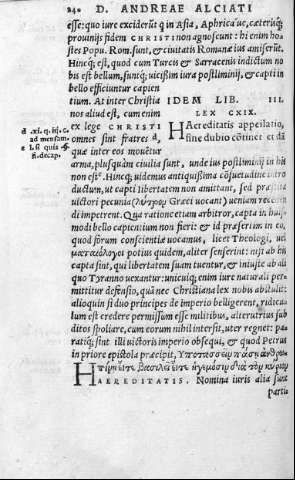 240 D. ANDREAE ALCIATI
esse: quo iure exciderũt qui in Asia, Aphricaʼue, cæteriʼq;
prouinijs fidem CHRISTI non agnoscunt: hi enim ho-
stes Popu. Rom. sunt, & ciuitatis Romanæ ius amiserũt.
Hincq; est, quod cum Turcis & Sarracenis indictum no
bis est bellum, suncq; uicissim iura postliminij, & capti in
bello efficiuntur capien
tium. At inter Christia
nos aliud est, cum enim
ex lege CHRISTI
omnes sint fratres d,
quæ inter eos mouētur
IDEM LIB. III.
LEX CXIX.
Haereditatis appellatio,
sine dubio cōtinet & dā
d .xi. q. iij. c.
ad mensam.
e l. si quis
ff. de cap.
arma, plusquàm ciuilia sunt, unde ius postliminij in his
non est e. Hincq; uidemus antiquissima cōsuetudine intro
ductum, ut capti libertatem non amittant, sed præstito
victori pecunia (λύτρον Græci uocant) ueniam res
di impetrent. Qua ratione etiam arbitror, capta in huius-
modi bello captiuum non fieri: & id præsertim in eo,
quod forum conscientiæ uocamus, licet Theologi, uel
ματαιολόγοι potius quidem, aliter senserint: nisi ab his
capta sint, qui libertatem suam tuentur, & iniuste ab ali
quo Tyranno uexantur: unicuiq; enim iure naturali per-
mittitur defensio, quā nec Christiana lex nobis abstulit:
alioquin si duo principes de imperio belligerent, ridicu-
lum est credere permissum esse militibus, alterutrius sub
ditos spoliare, cum eorum nihil intersit, uter regnet: pa-
ratiq; sint illi victoris imperio obsequi, & quod Petrus
in priore epistola præcipit,
HAEREDITATIS. Nomina iuris alia sunt
partis